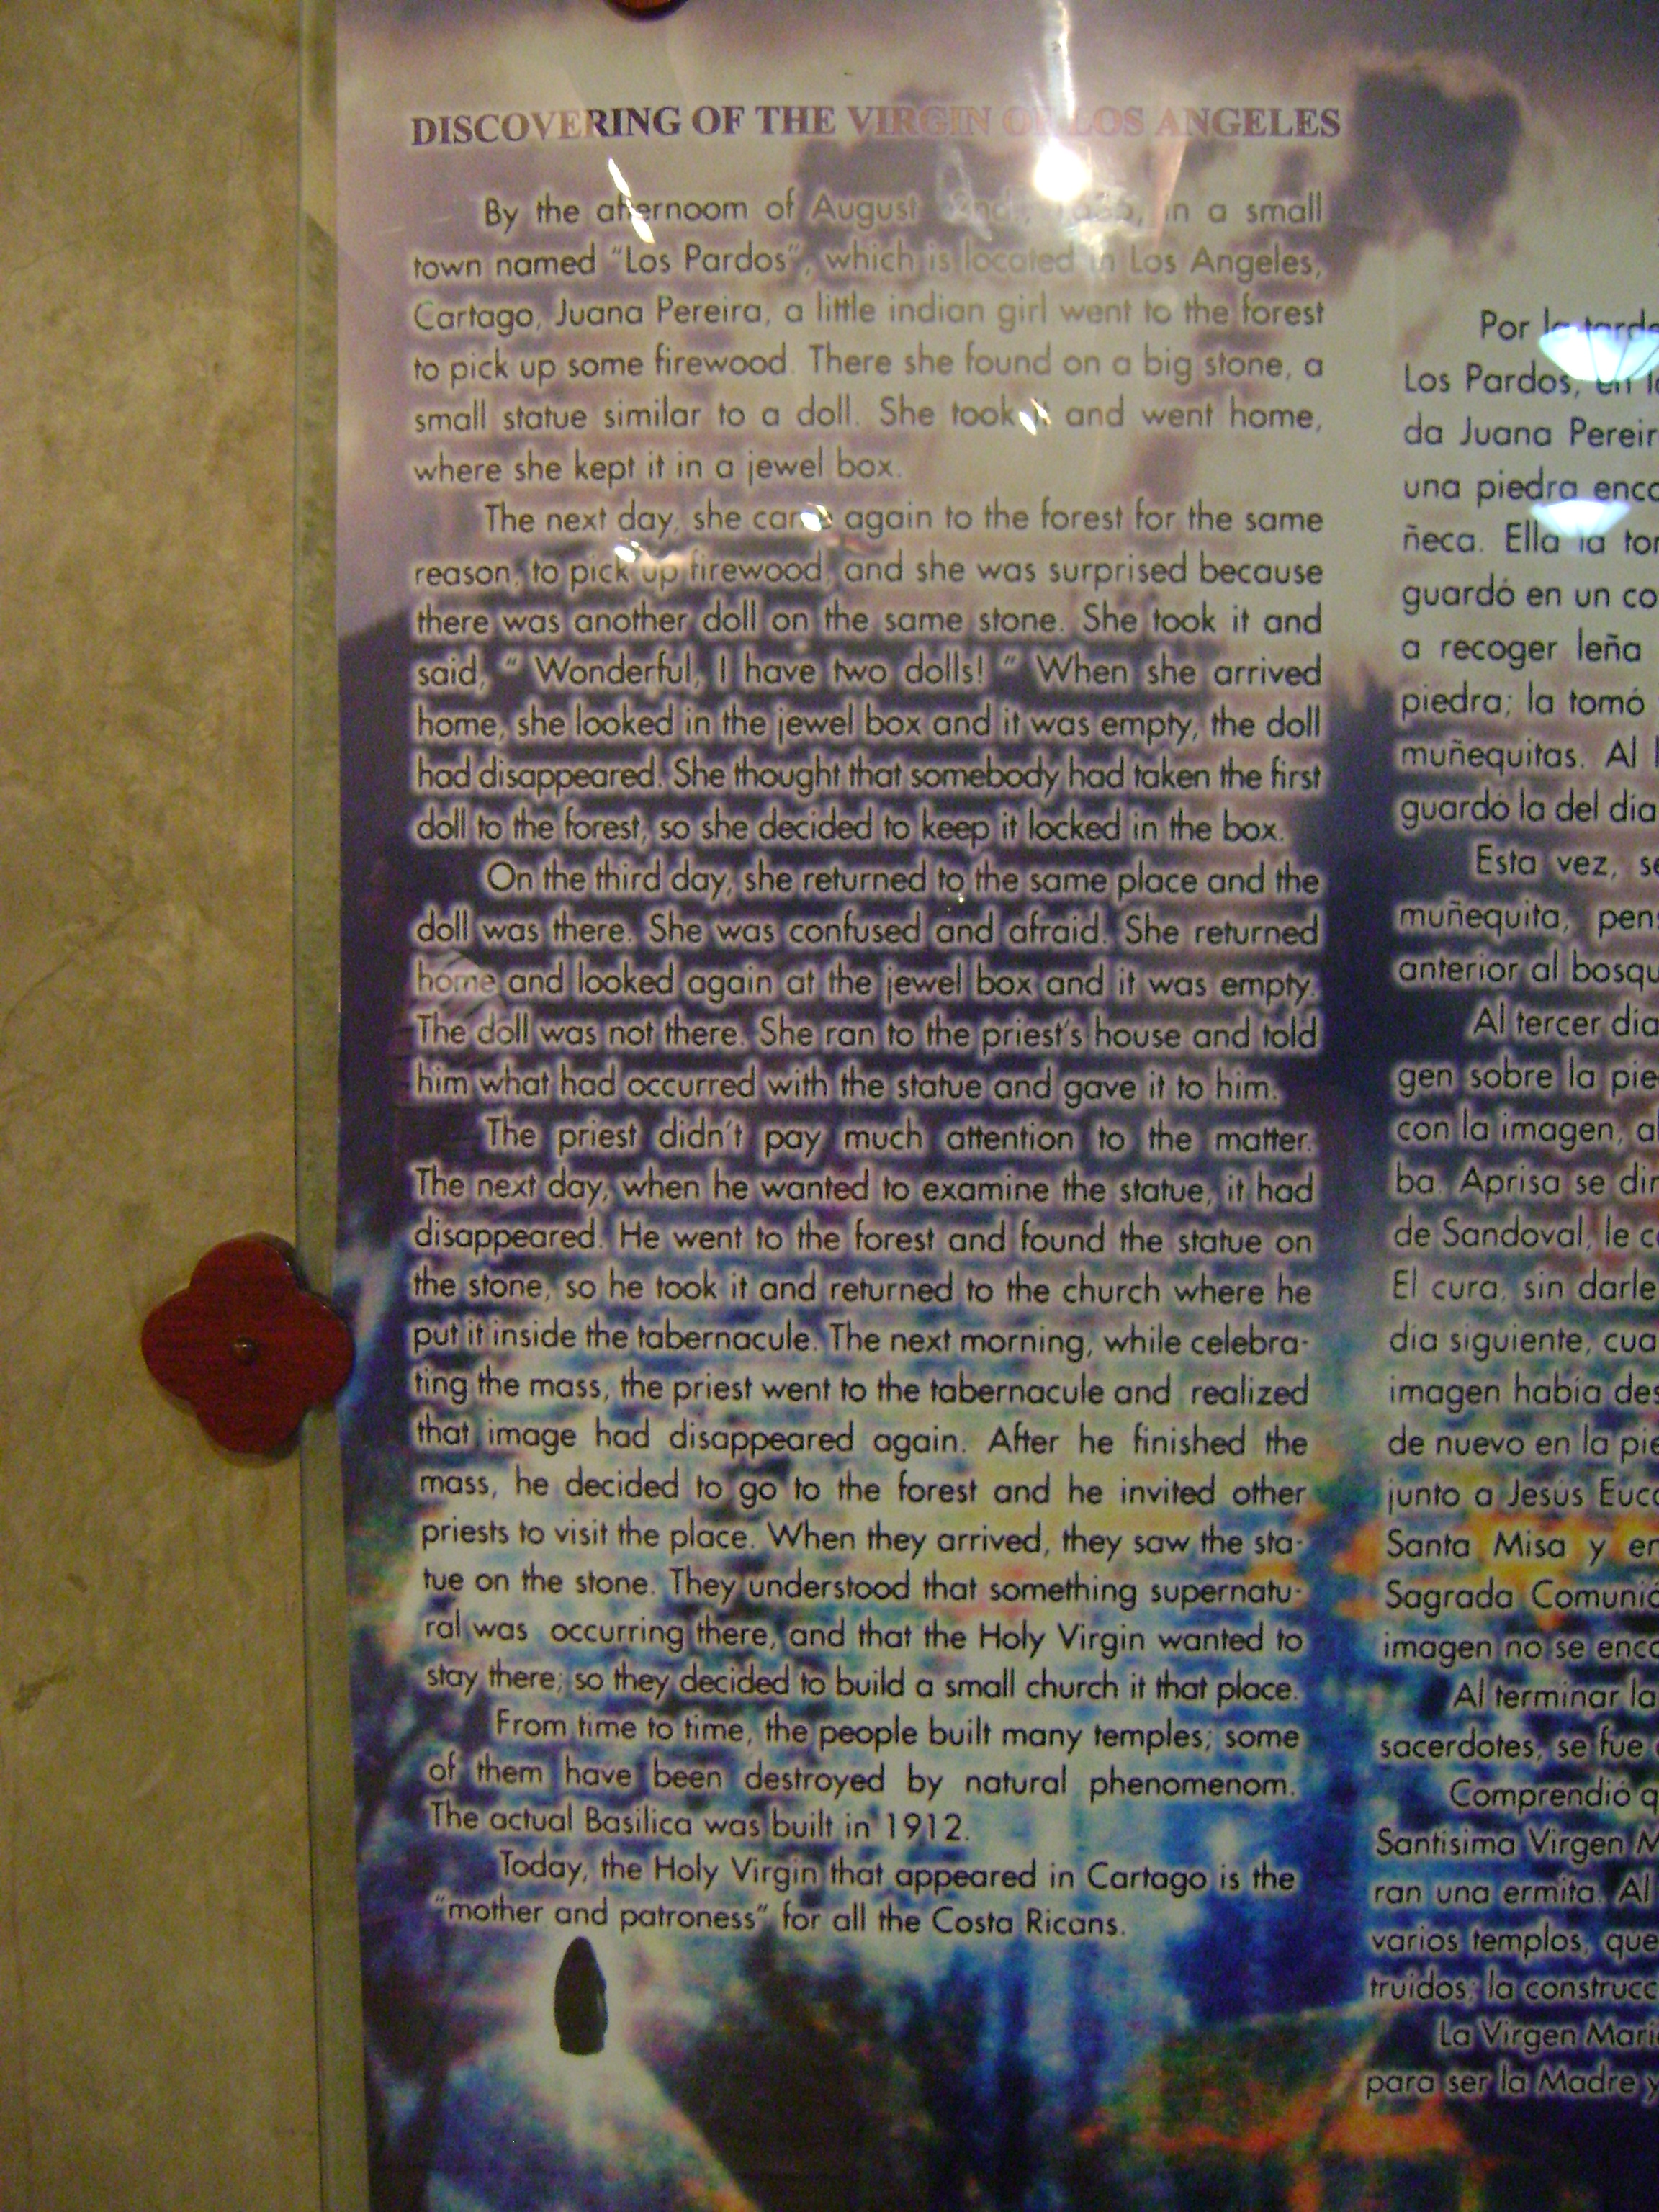 DISCOVERING OF THE VIRGIN OF LOS ANGELES
By the afternoom of August in a small
town named “Los Pardos”, which is located in Los Angeles,
Cartago, Juana Pereira, a little indian girl went to the forest
to pick up some firewood. There she found on a big stone, a
small statue similar to a doll. She took it and went home,
where she kept it in a jewel box.
The next day, she came again to the forest for the same
reason, to pick up firewood, and she was surprised because
there was another doll on the same stone. She took it and
said, “ Wonderful, I have two dolls! ” When she arrived
home, she looked in the jewel box and it was empty, the doll
had disappeared. She thought that somebody had taken the first
doll to the forest, so she decided to keep it locked in the box.
On the third day, she returned to the same place and the
doll was there. She was confused and afraid. She returned
home and looked again at the jewel box and it was empty.
The doll was not there. She ran to the priest's house and told
him what had occurred with the statue and gave it to him.
The priest didn't pay much attention to the matter.
The next day, when he wanted to examine the statue, it had
disappeared. He went to the forest and found the statue on
the stone, so he took it and returned to the church where he
put it inside the tabernacule. The next morning, while celebra-
ting the mass, the priest went to the tabernacule and realized
that image had disappeared again. After he finished the
mass, he decided to go to the forest and he invited other
priests to visit the place. When they arrived, they saw the sta-
tue on the stone. They understood that something supernatu-
ral was occurring there, and that the Holy Virgin wanted to
stay there; so they decided to build a small church it that place.
From time to time, the people built many temples; some
of them have been destroyed by natural phenomenom.
The actual Basilica was built in 1912.
Today, the Holy Virgin that appeared in Cartago is the
“mother and patroness” for all the Costa Ricans.
Por la tarde
Los Pardos, en
da Juana Pereir
una piedra enc
ñeca. Ella la tor
guardó en un co
a recoger leña
piedra; la tomó
muñequitas. Al
guardó la del día
Esta vez, se
muñequita, pens
anterior al bosqu
Al tercer día
gen sobre la pie
con la imagen, al
ba. Aprisa se dir
de Sandoval, le c
El cura, sin darle
día siguiente, cua
imagen había des
de nuevo en la pie
junto a Jesús Euc
Santa Misa y en
Sagrada Comunió
imagen no se enc
Al terminar la
sacerdotes, se fue
Comprendió q
Santísima Virgen M
ran una ermita. Al
varios templos, que
truidos; la construcc
La Virgen Marí
para ser la Madre y